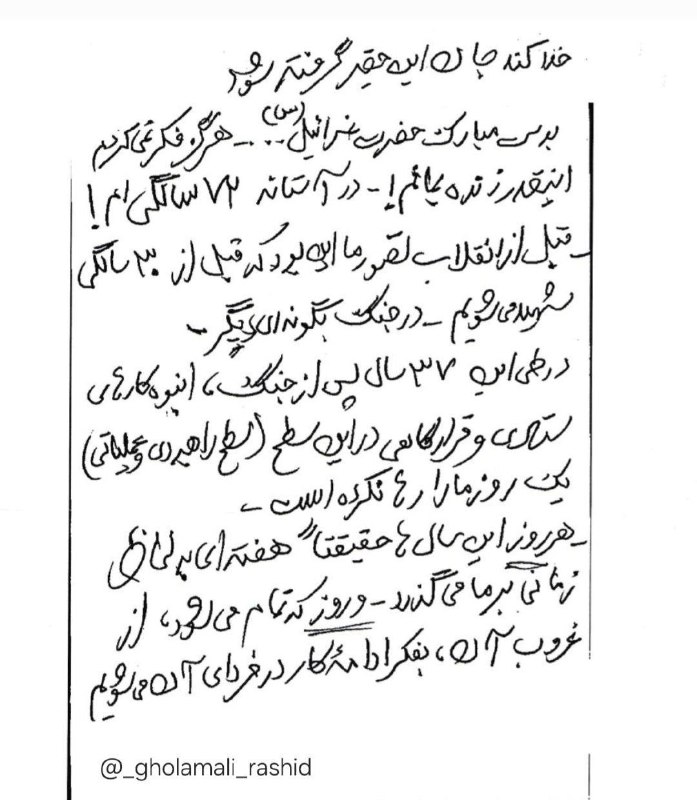 خدا کند جان این حقیر گرفته شود
بدست مبارک حضرت عزرائیل (س) .. - هرگز فکر نمی‌کردم
اینقدر زنده بمانم! - در آستانه ۷۲ سالگی ام!
- قبل از انقلاب تصور ما این بود که قبل از ۳۰ سالگی
شهید می‌شویم - در جنگ بگونه‌ای دیگر -
در طی این ۳۷ سال پس از جنگ، انبوه کارهای
ستادی و قرارگاهی در این سطح (سطح راهبردی و عملیاتی)
یک روز ما را رها نکرده است -
- هر روز این سال ها حقیقتاً هفته‌ای به لحاظ
زمانی بر ما می‌گذرد - و روز که تمام می‌شود، از
غروب آن، بفکر ادامهٔ کار در فردای آن می‌شویم
@_gholamali_rashid